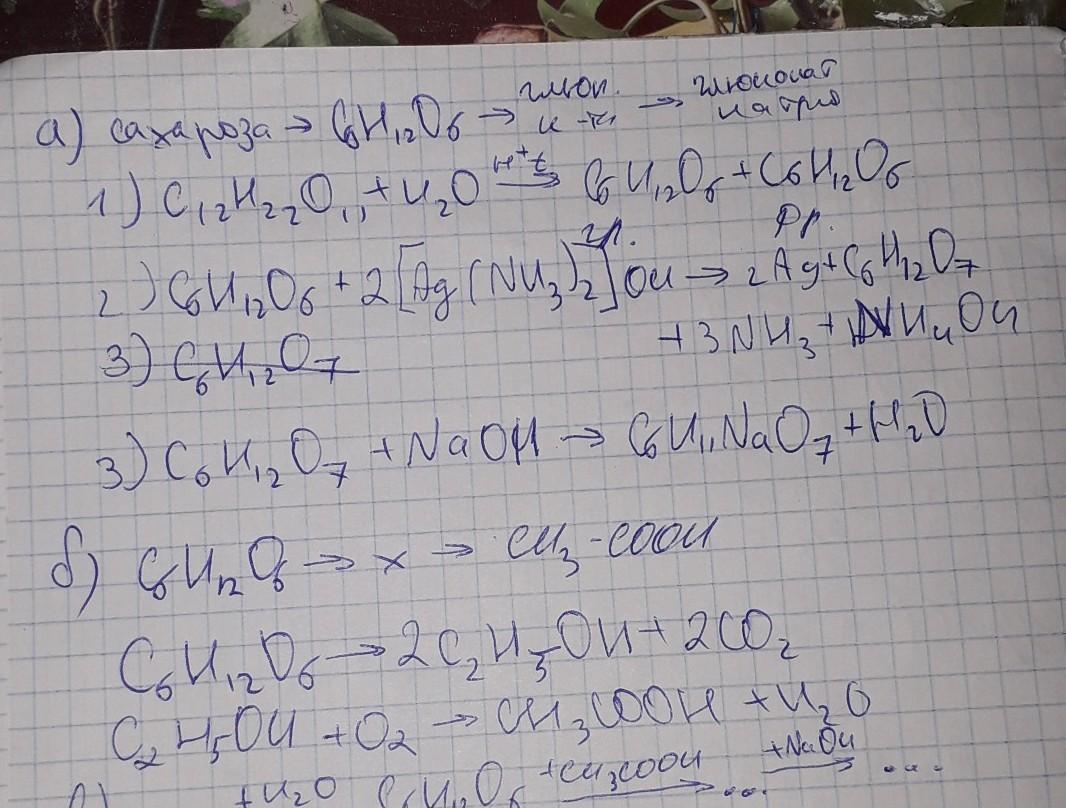 а) сахароза → C₆H₁₂O₆ → глюк. к-та → глюконат натрия
1) C₁₂H₂₂O₁₁ + H₂O —H⁺ t→ C₆H₁₂O₆ + C₆H₁₂O₆
гл. фр.
2) C₆H₁₂O₆ + 2[Ag(NH₃)₂]OH → 2Ag + C₆H₁₂O₇
+ 3NH₃ + NH₄OH
3) C₆H₁₂O₇
3) C₆H₁₂O₇ + NaOH → C₆H₁₁NaO₇ + H₂O
б) C₆H₁₂O₆ → x → CH₃-COOH
C₆H₁₂O₆ → 2C₂H₅OH + 2CO₂
C₂H₅OH + O₂ → CH₃COOH + H₂O
+H₂O C₆H₁₂O₆ +CH₃COOH → ... +NaOH → ...